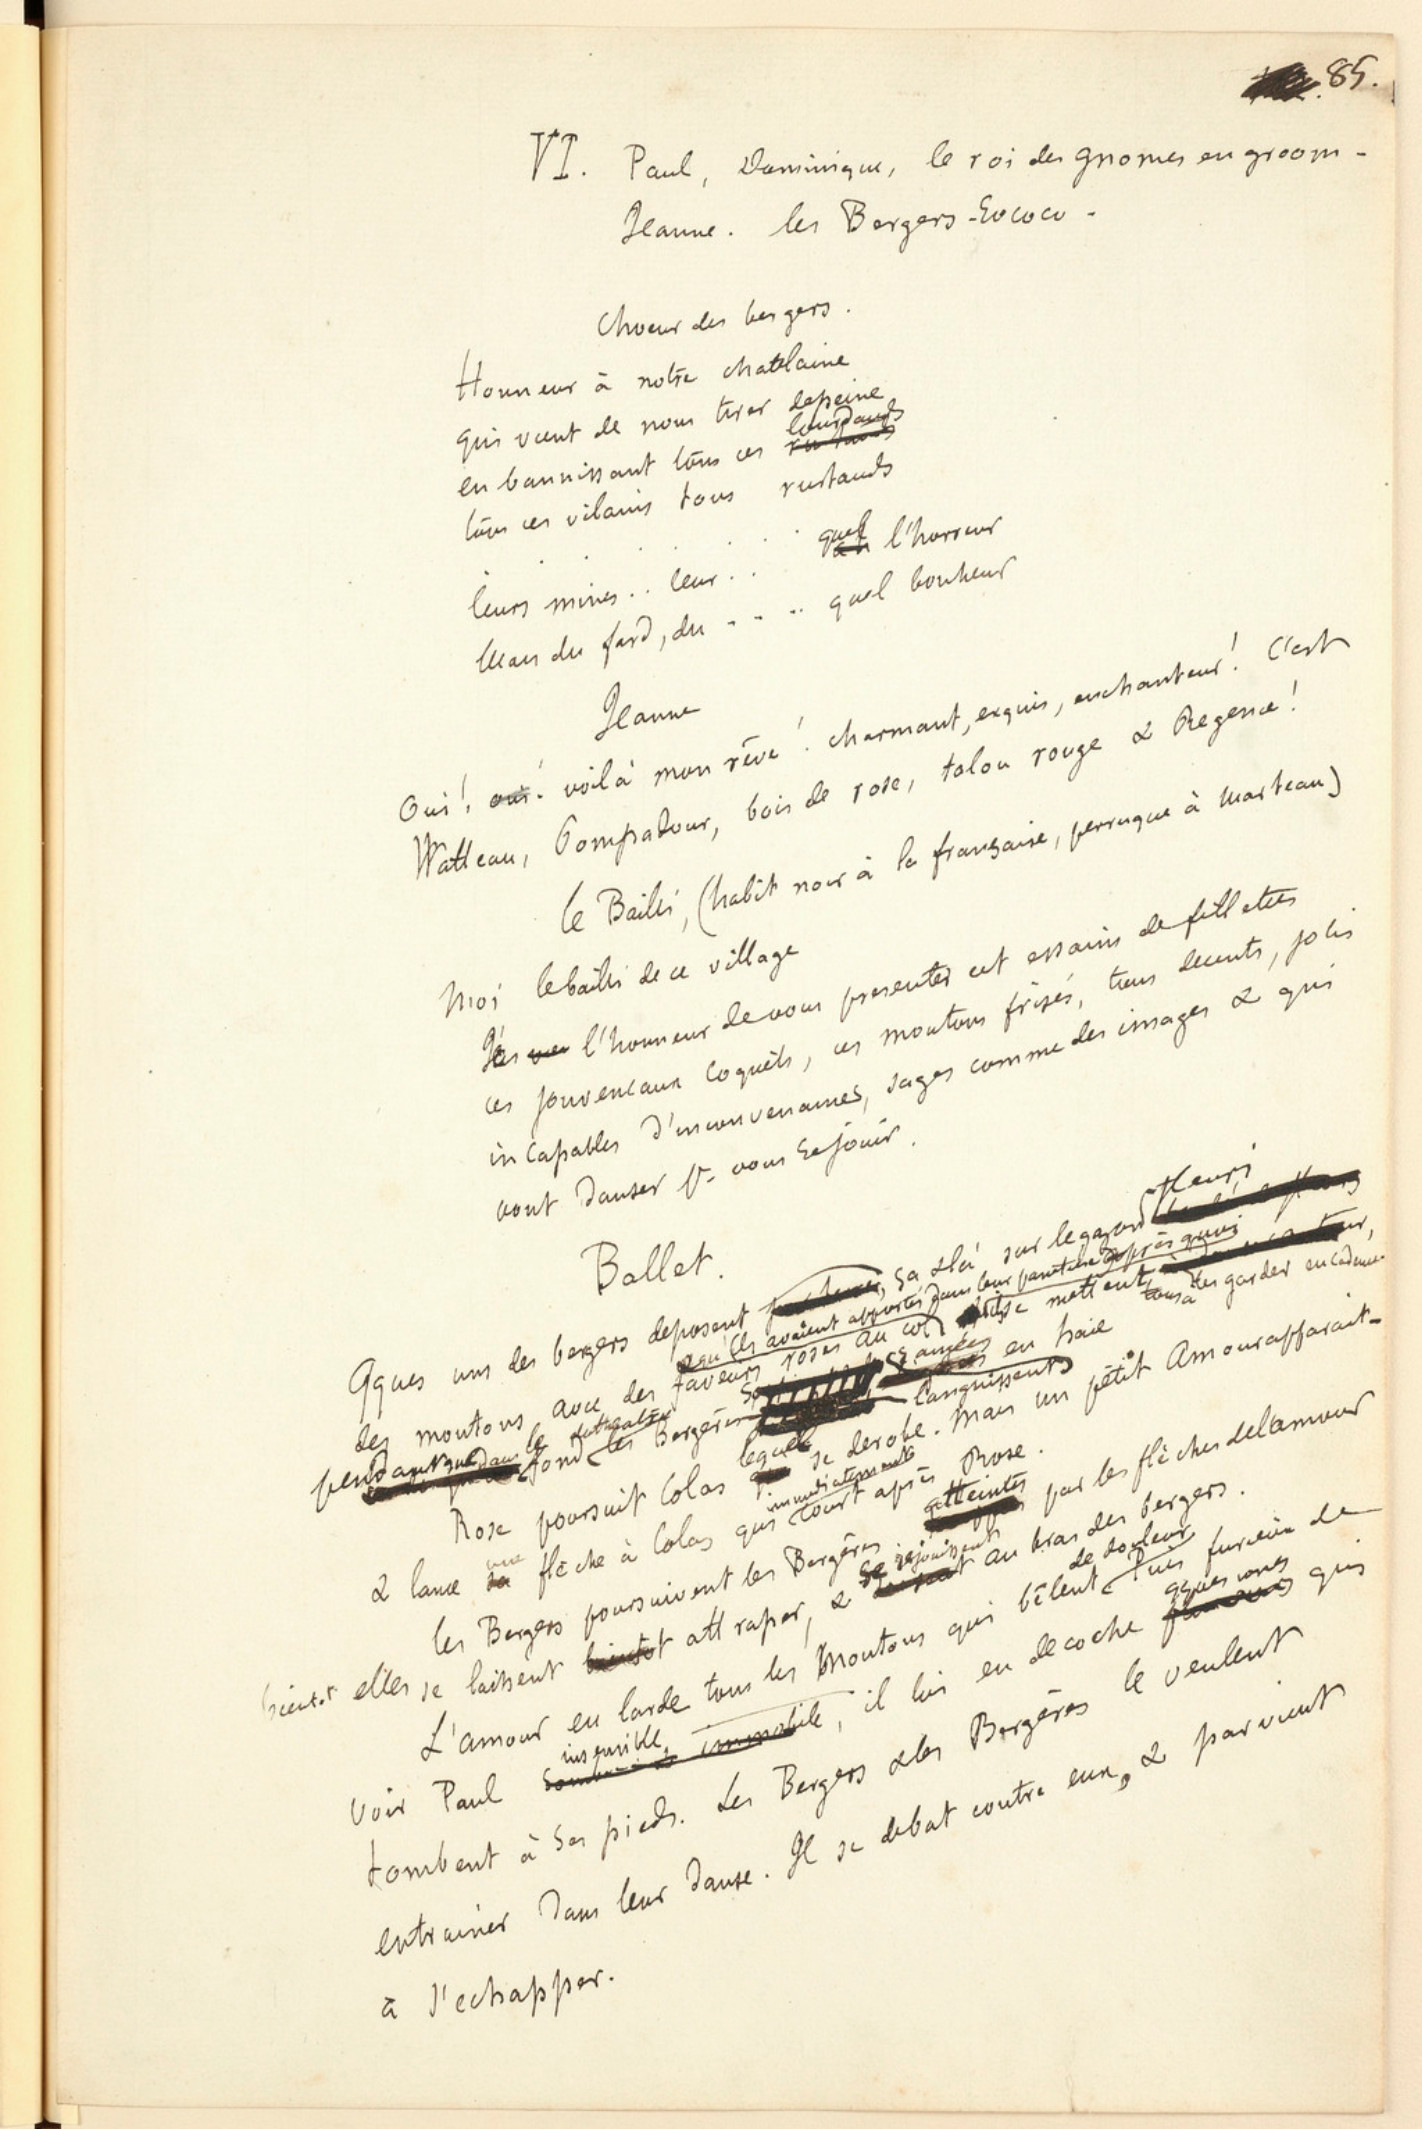 85.
VI. Paul, Dominique, le roi des gnomes en groom -
Jeanne. les Bergers-Rococo -
Choeur des bergers.
Honneur à notre chatelaine
qui vient de nous tirer de peine
en bannissant tous ces lourdauds
tous ces vilains tous rustauds
. . . . . .
leurs mines .. leur . . . quel l'horreur
Mais du fard, du - - .. quel bonheur
Jeanne
Oui! oui! voilà mon rêve! charmant, exquis, enchanteur! C'est
Watteau, Pompadour, bois de rose, talon rouge & Regence!
le Bailli, (habit noir à la française, perruque à marteau)
Moi le bailli de ce village
J'ai l'honneur de vous presenter cet essaim de fillettes
ces jouvenceaux coquets, ces moutons frisés, tous decents, jolis
incapables d'inconvenances, sages comme des images & qui
vont danser pr vous rejouir.
Ballet.
Qques uns des bergers deposent ça & là sur le gazon fleuri
qu'ils avaient apportés dans leur panetière après quoi
des moutons avec des faveurs roses au col se mettent tous à les garder en cadence
pendant que dans le fond les Bergères en haie
languissent
Rose poursuit Colas lequel se derobe. Mais un petit Amour apparait -
& lance une flèche à Colas qui immediatement court après Rose.
les Bergers poursuivent les Bergères atteintes par les flèches de l'amour
bientot elles se laissent attraper, & se rejouissent au bras des bergers.
L'amour en larde tous les Moutons qui bêlent de douleur Puis furieux de
voir Paul insensible, il lui en decoche qques unes qui
tombent à ses pieds. Les Bergers & les Bergères le veulent
entrainer dans leur danse. Il se debat contre eux, & parvient
à s'echapper.